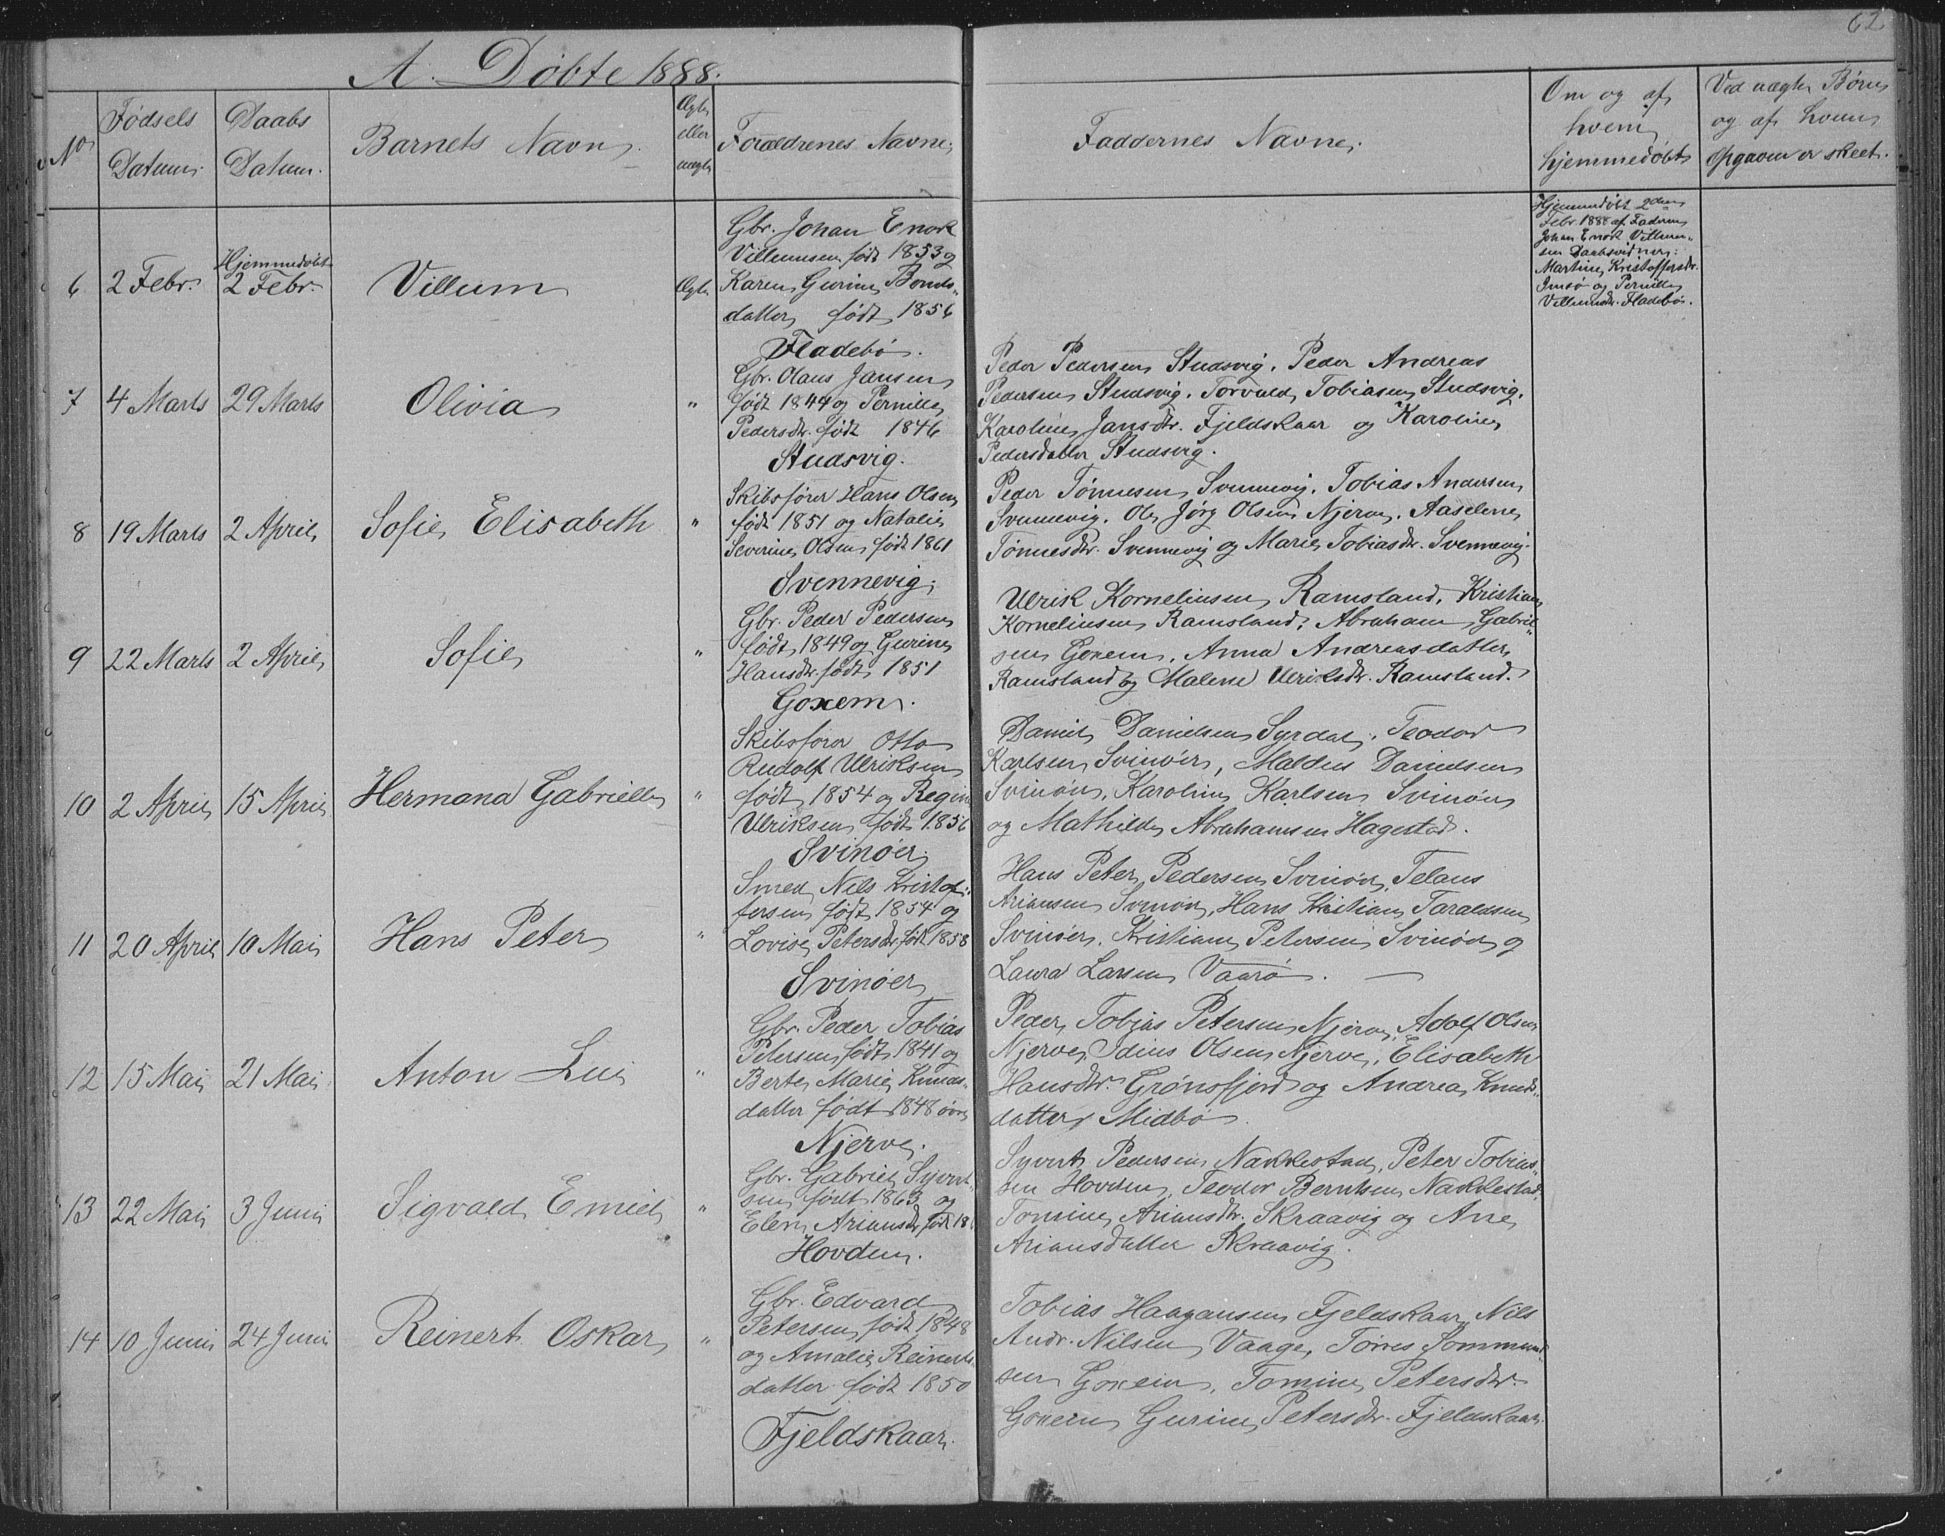 62
A. Døbte 1888.
No
Fødsels Datum.
Daabs Datum.
Barnets Navn.
Ægte eller uægte
Forældrenes Navne.
Faddernes Navne.
Om og af hvem hjemmedøbt
Ved uægte Børn og af hvem Opgaven er skeet.
6
2 Febr.
Hjemmedøbt
2 Febr.
Villum
Ægte
Gbr. Johan Enok
Villumsen født 1853 og
Karen Gurine Bents-
datter født 1856
Fladebø.
Hjemmedøbt 2den
Febr. 1888 af Faderen
Johan Enok Villum-
sen Daabsvidner:
Martine Kristoffersdr.
Imsø og Pernille
Villumsdr. Fladebø.
7
4 Marts
29 Marts
Olivia
"
Gbr. Olaus Jansen
født 1844 og Pernille
Pedersdr. født 1846
Studsvig.
Peder Pedersen Studsvig. Peder Andreas
Pedersen Studsvig. Torvald Tobiasen Studsvig.
Karoline Jansdtr. Fjeldskaar og Karoline
Pedersdatter Studsvig.
8
19 Marts
2 April
Sofie Elisabeth
"
Skibsfører Hans Olsen
født 1851 og Natalie
Severine Olsen født 1861
Svennevig.
Peder Tønnesen Svennevig. Tobias Andersen
Svennevig. Ole Jørg Olsen Njerve. Aaselene
Tønnesdr. Svennevig og Marie Tobiasdr. Svennevig.
9
22 Marts
2 April
Sofie
"
Gbr. Peder Pedersen
født 1849 og Gurine
Hansdr. født 1851
Goxem.
Ulrik Korneliusen Ramsland. Kristian
Korneliusen Ramsland. Abraham Gabriel-
sen Goxem. Anna Andreasdatter
Ramsland og Malene Ulriksdr. Ramsland.
10
2 April
15 April
Hermana Gabrielle
"
Skibsfører Otto
Rudolf Ulriksen
født 1854 og Regine
Ulriksen født 1856
Svinøer.
Daniel Danielsen Syrdal. Teodor
Karlsen Svinøer, Maldus Danielsen
Svinøer. Karoline Karlsen Svinøer
og Mathilde Abrahamsen Hagestad.
11
20 April
10 Mai
Hans Peter
"
Smed Nils Kristof-
fersen født 1854 og
Lovise Petersdr. født 1858
Svinøer
Hans Peter Pedersen Svinøer, Telaus
Ariansen Svinøer, Hans Kristian Taraldsen
Svinøer. Kristian Petersen Svinøer og
Laura Larsen Vaarø.
12
15 Mai
21 Mai
Anton Lui
"
Gbr. Peder Tobias
Petersen født 1841 og
Berte Marie Knuds-
datter født 1848 øvre
Njerve.
Peder Tobias Petersen Njerve, Adolf Olsen
Njerve, Idius Olsen Njerve. Elisabeth
Hansdr. Grønsfjord og Andrea Knuds-
datter Midbø.
13
22 Mai
3 Juni
Sigvald Emiel
"
Gbr. Gabriel Syvert-
sen født 1863 og
Elen Ariansdr. født 18
Hovden.
Syvert Pedersen Nakkestad, Peter Tobias-
sen Hovden, Teodor Berntsen Nakkestad.
Tomine Ariansdr. Skraavig og Ane
Ariansdatter Skraavig.
14
10 Juni
24 Juni
Reinert Oskar
"
Gbr. Edvard
Petersen født 1848
og Amalie Reinerts-
datter født 1850
Fjeldskaar.
Tobias Haagansen Fjeldskaar, Nils
Andr. Nilsen Vaage, Tørres Sommund-
sen Goxem, Tomine Petersdr.
Goxem Gurine Petersdr. Fjeldskaar.